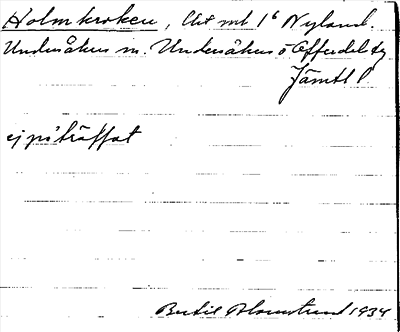 Holmkroken, Utmt 1⁶ Nyland.
Undersåkers sn. Undersåkers o Offerdals tg
Jämtl l
ej påträffat
Bertil Blomstrand 1934